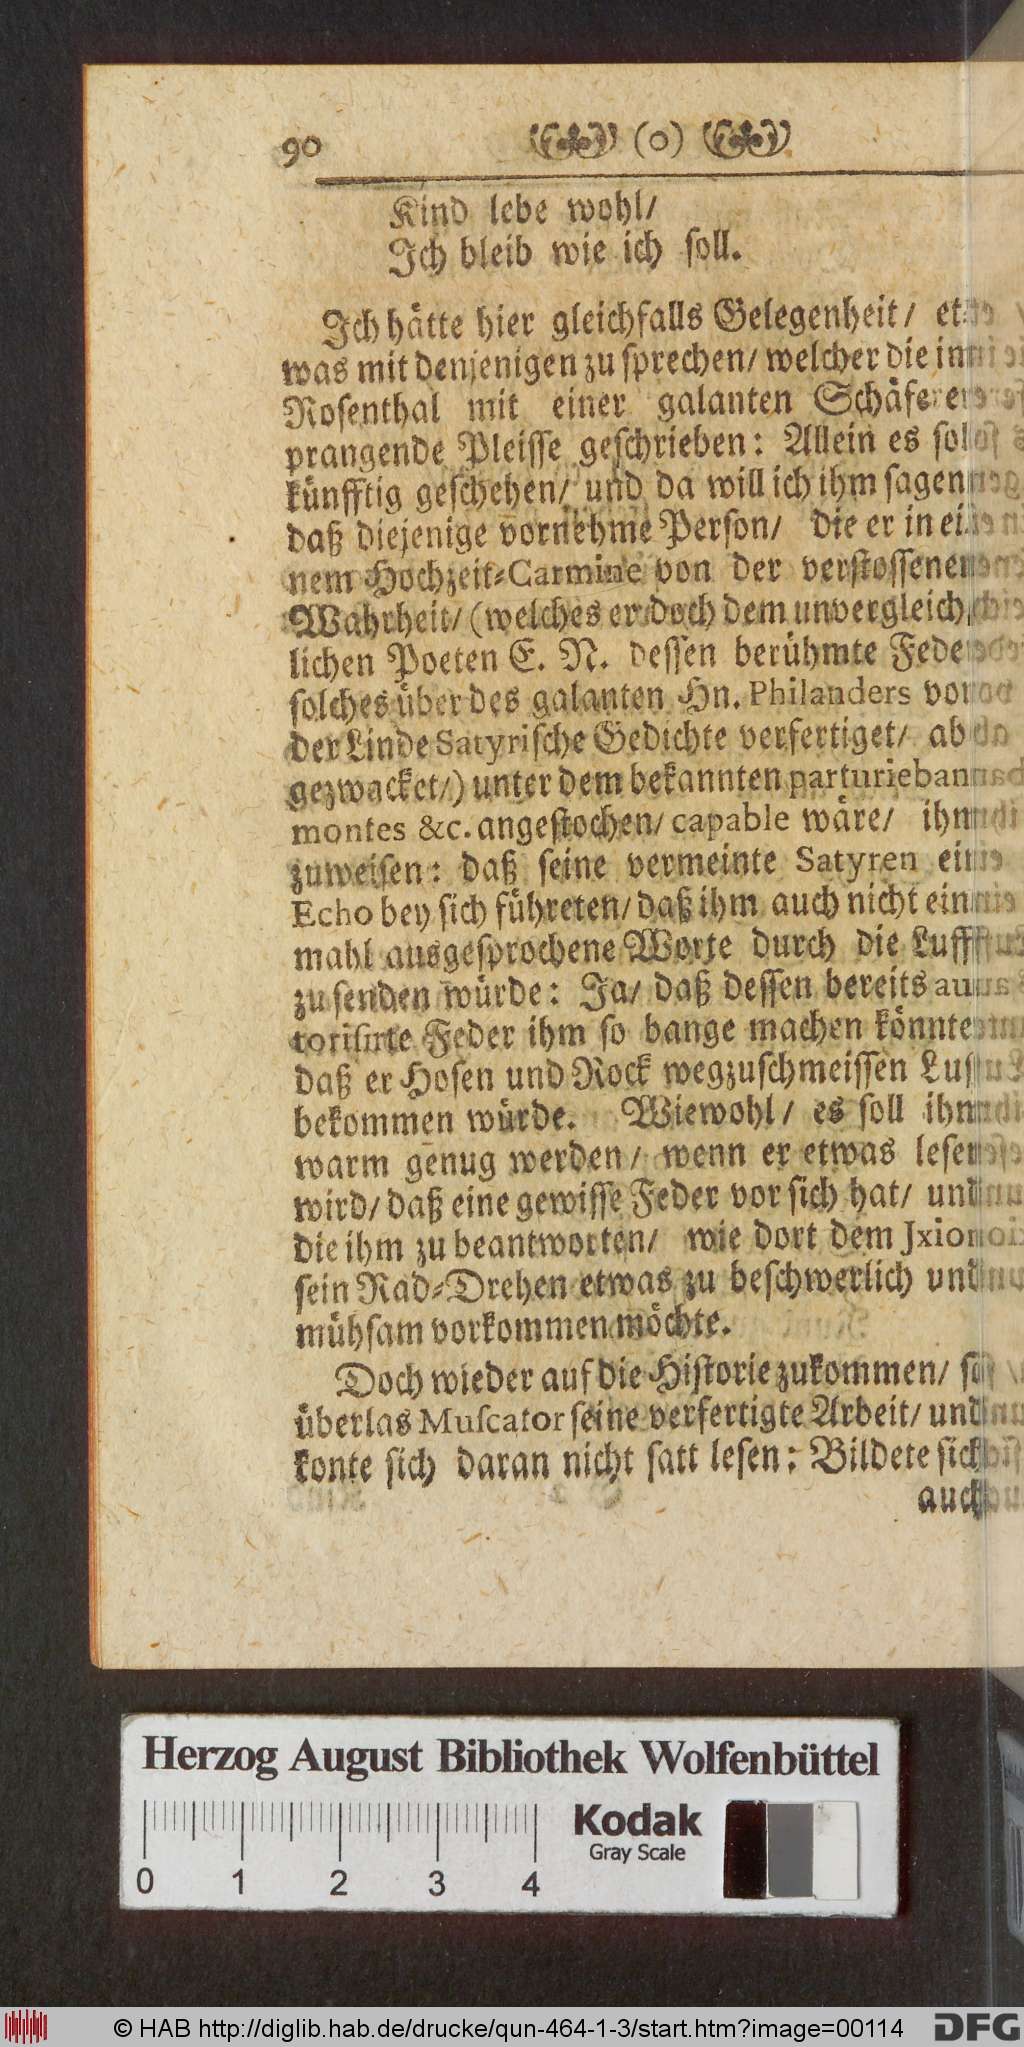 90 (o)
Kind lebe wohl/
Ich bleib wie ich soll.
Ich hätte hier gleichfalls Gelegenheit/ et-
was mit denjenigen zu sprechen/ welcher die im
Rosenthal mit einer galanten Schäferey
prangende Pleisse geschrieben: Allein es sol
künfftig geschehen/ und da will ich ihm sagen
daß diejenige vornehme Person/ die er in ei-
nem Hochzeit-Carmine von der verstossenen
Wahrheit/ (welches er doch dem unvergleich-
lichen Poeten E. N. dessen berühmte Feder
solches über des galanten Hn. Philanders von
der Linde Satyrische Gedichte verfertiget/ ab
gezwacket/) unter dem bekannten parturiebant
montes &c. angestochen/ capable wäre/ ihm
zuweisen: daß seine vermeinte Satyren ein
Echo bey sich führeten/ daß ihm auch nicht ein
mahl ausgesprochene Worte durch die Lufft
zu senden würde: Ja/ daß dessen bereits au
torisirte Feder ihm so bange machen könnte
daß er Hosen und Rock wegzuschmeissen Lust
bekommen würde. Wiewohl/ es soll ihm
warm genug werden/ wenn er etwas lesen
wird/ daß eine gewisse Feder vor sich hat/ und
die ihm zu beantworten/ wie dort dem Jxion
sein Rad-Drehen etwas zu beschwerlich und
mühsam vorkommen möchte.
Doch wieder auf die Historie zukommen/ so
überlas Muscator seine verfertigte Arbeit/ und
konte sich daran nicht satt lesen: Bildete sich
auch
Herzog August Bibliothek Wolfenbüttel
Kodak
Gray Scale
0 1 2 3 4
© HAB http://diglib.hab.de/drucke/qun-464-1-3/start.htm?image=00114
DFG